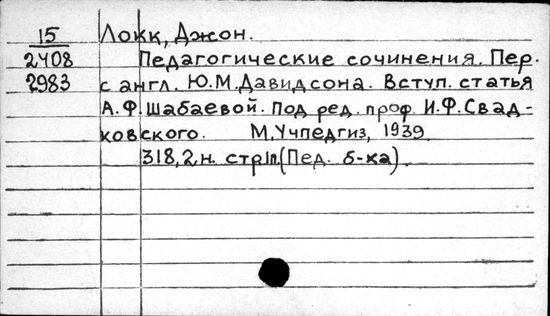 15 Локк, Джон.
2408 Педагогические сочинения. Пер.
2983 с англ. Ю.М.Давидсона. Вступ. статья
А.Ф.Шабаевой. Под ред. проф. И.Ф.Свад-
ковского. М.Учпедгиз, 1939
318,2н. стр1п.(Пед. б-ка).